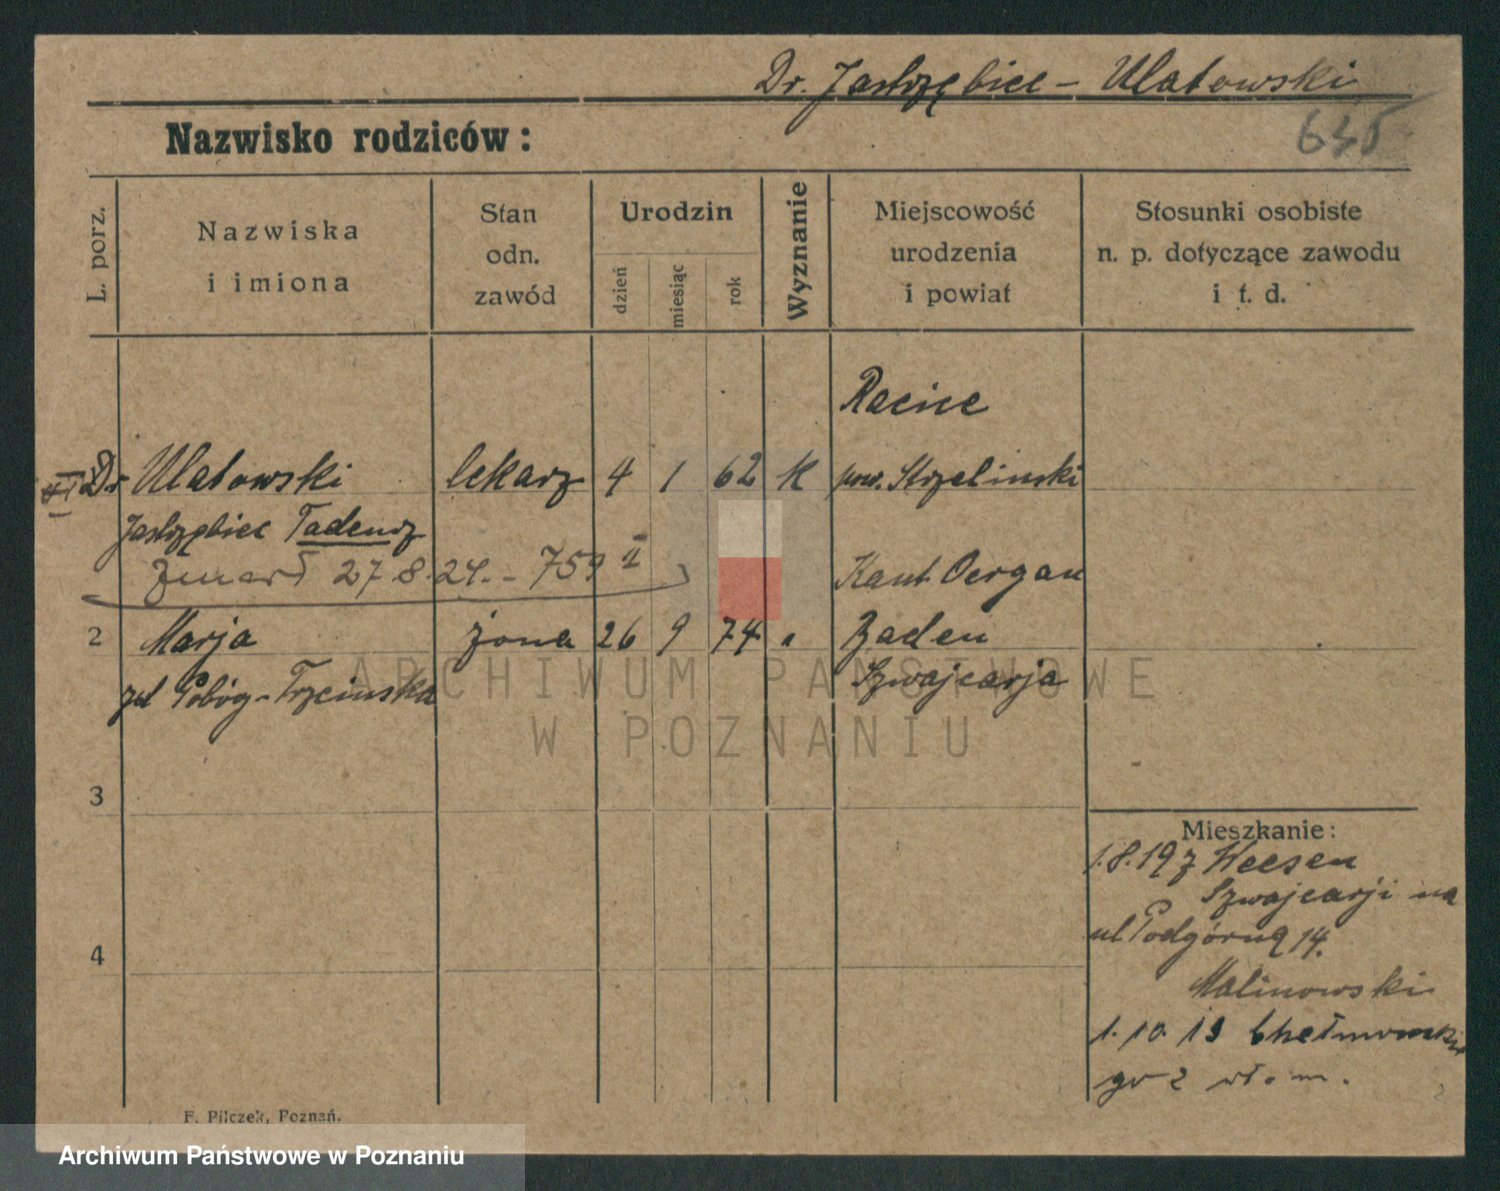 Dr. Jastrzębiec - Ulatowski
Nazwisko rodziców:
635
L. porz.
Nazwiska
i imiona
Stan
odn.
zawód
Urodzin
dzień
miesiąc
rok
Wyznanie
Miejscowość
urodzenia
i powiat
Stosunki osobiste
n. p. dotyczące zawodu
i t. d.
Racice
Dr Ulatowski lekarz 4 1 62 k pow. Strzelinski
Jastrzębiec Tadeusz
Zmarł 27.8.24. - 759 II
Kant.
2 Marja żona 26 9 74 " Baden
Szwajcarja
zd Pobóg-Trzcinska
ARCHIWUM PAŃSTWOWE
W POZNANIU
3
Mieszkanie:
1.8.19 z Weesen
Szwajcarji na
ul Podgórną 14.
4
Malinowski
1.10.19 Chełmońskie
go 2 wł. m.
F. Pilczek, Poznań.
Archiwum Państwowe w Poznaniu